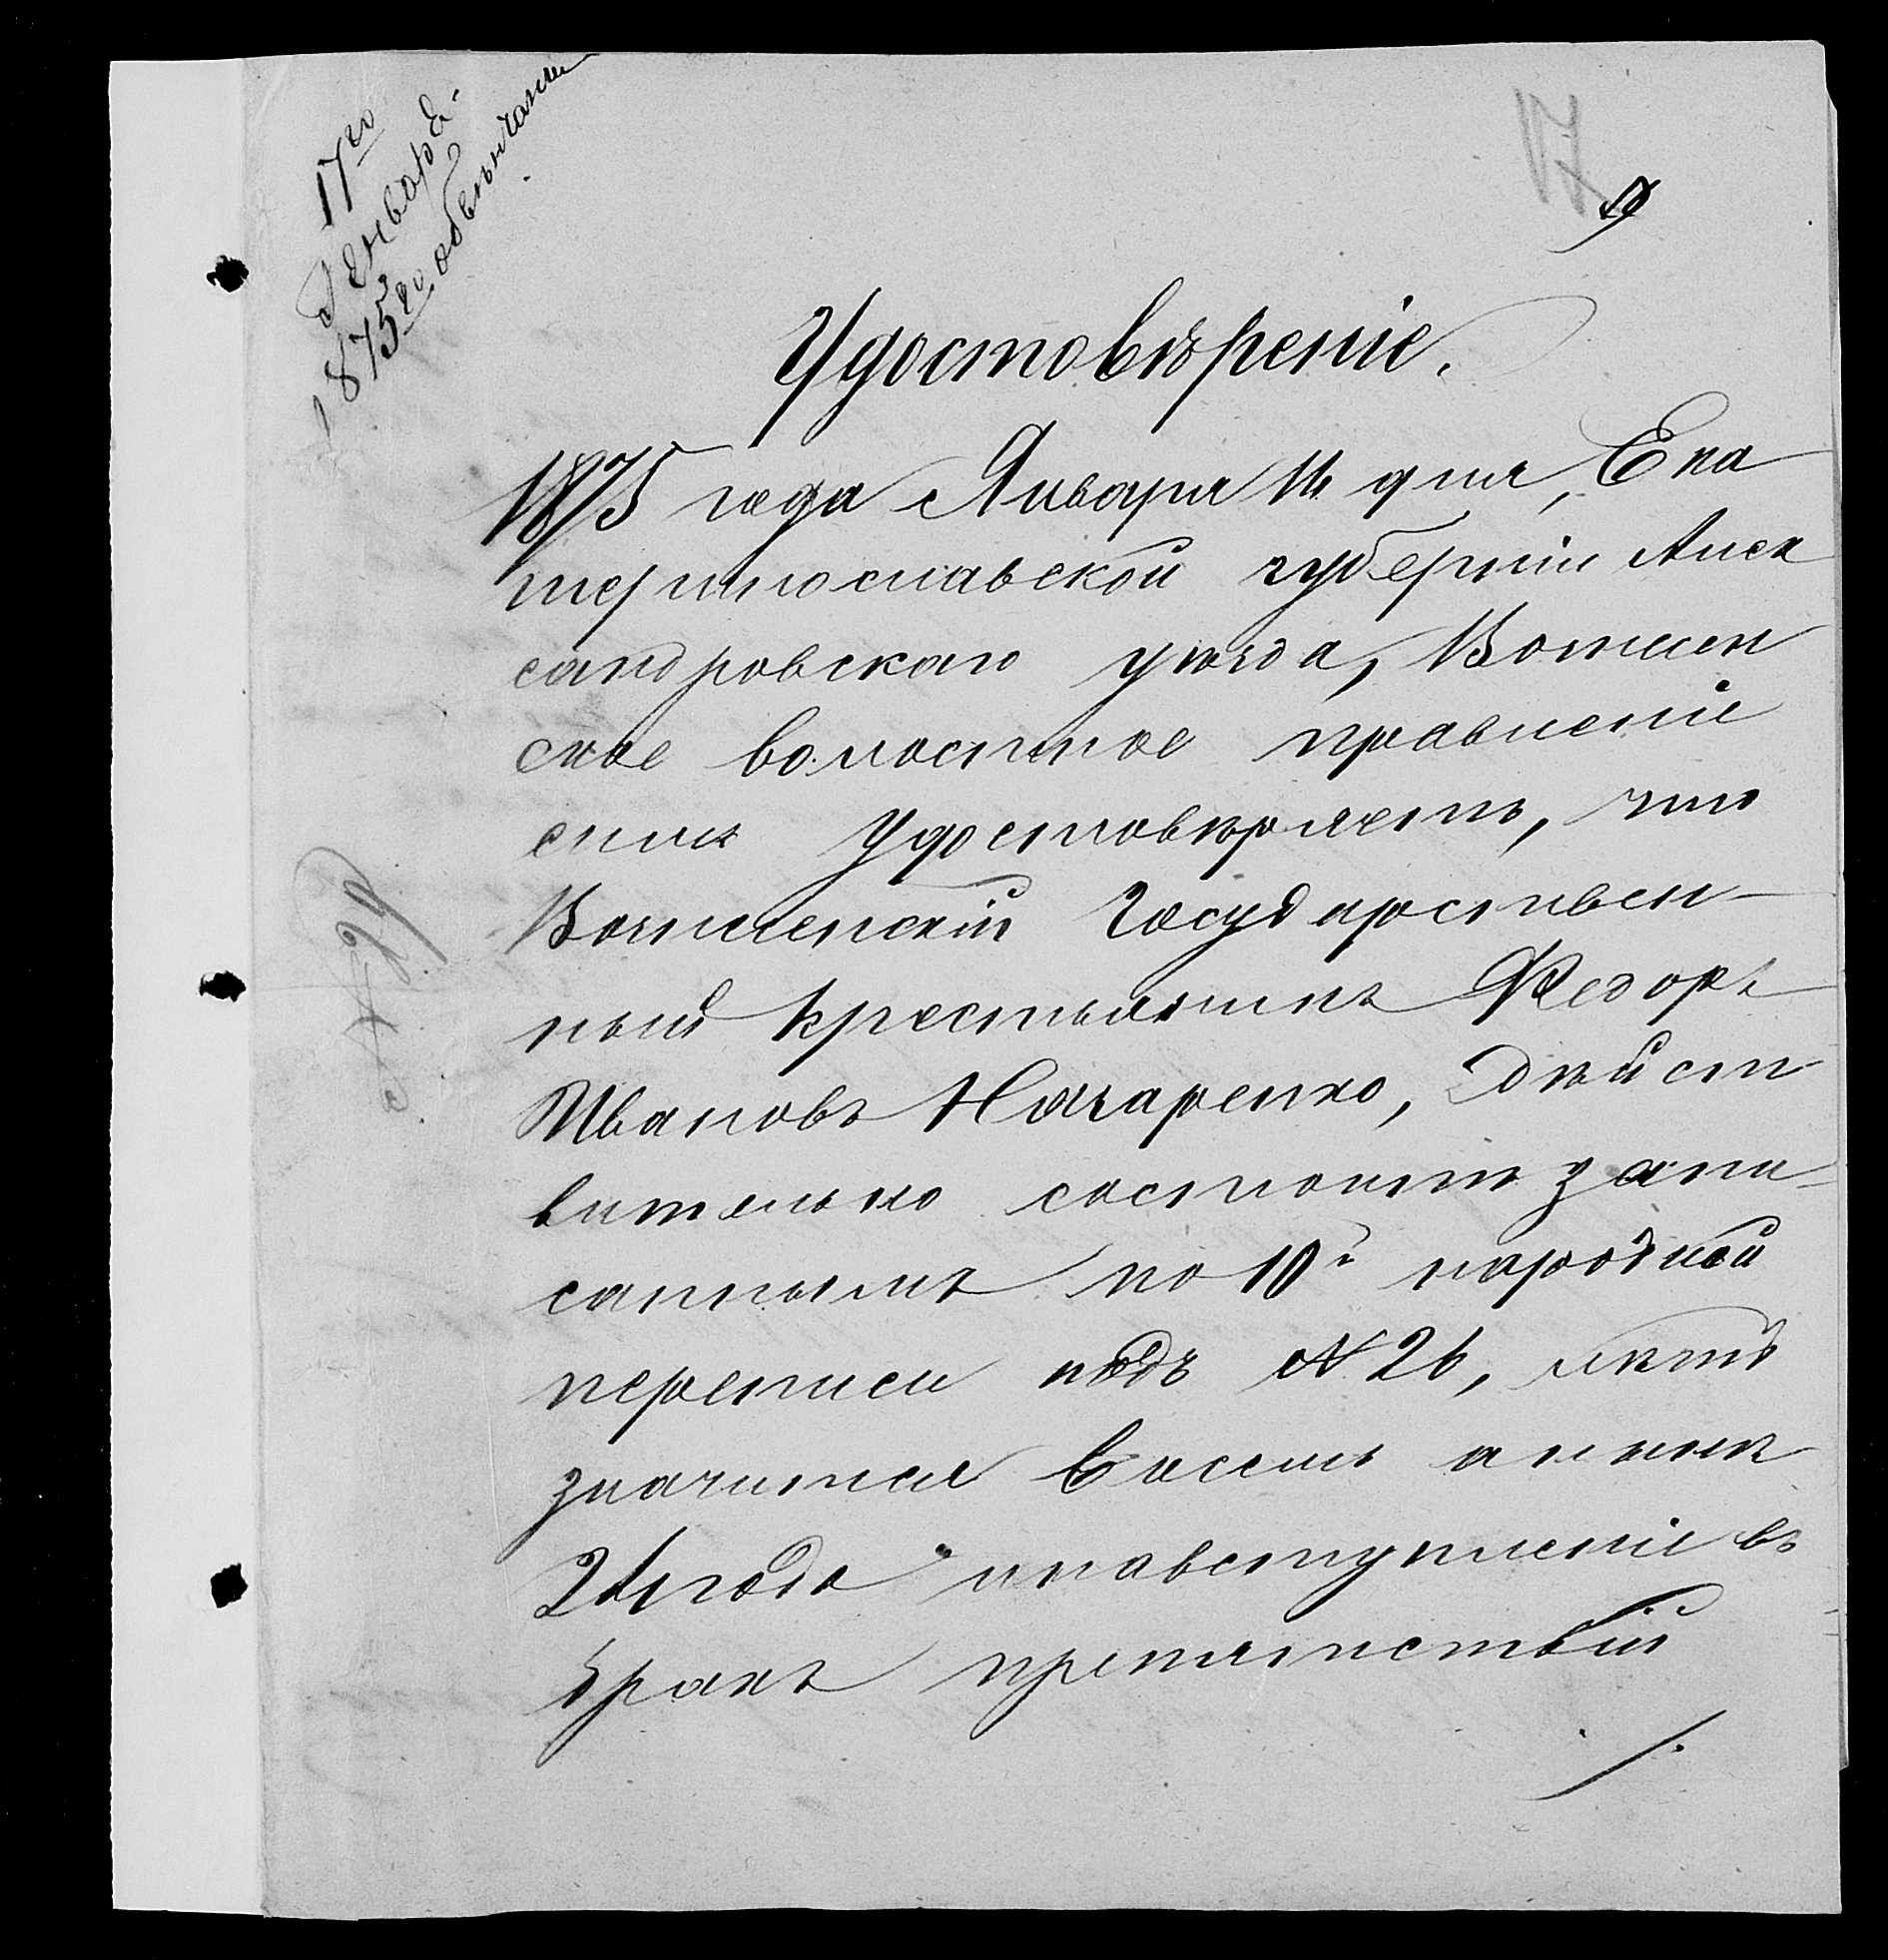 17го
Генваря
1875го обвенчан
17
9
Удостовѣреніе.
1875 года Января 14 дня, Ека
теринославской губерніи Алек
сандровскаго уѣзда,
ское волостное правленіе
симъ удостовѣряетъ, что
Государствен-
ный крестьянинъ Федоръ
Ивановъ Назаренко, дѣйст
вительно состоитъ запи-
саннымъ по 10й народной
переписи подъ № 26, лѣтъ
значится восемь а нынѣ
24 года и на вступленіе въ
бракъ препятствій
№ 29